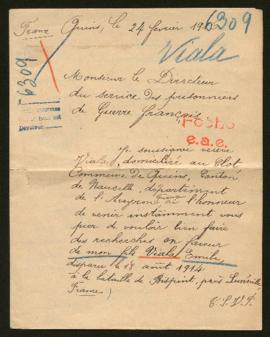 Franc Quins, le 24 février 1915
6309
Viala
6309
Monsieur le Directeur
du service des prisonniers
de Guerre français
e.a.e.
Je soussignée veuve
Viala, domiciliée au Clot
Commune de Quins, Canton
de Naucelle, département
de l'Aveyron, a l'honneur
de venir instamment vous
prier de vouloir bien faire
des recherches en faveur
de mon fils Viala Emile
disparu le 18 août 1914
à la bataille de Bisping, près Lunéville
France)
T.S.V.P.